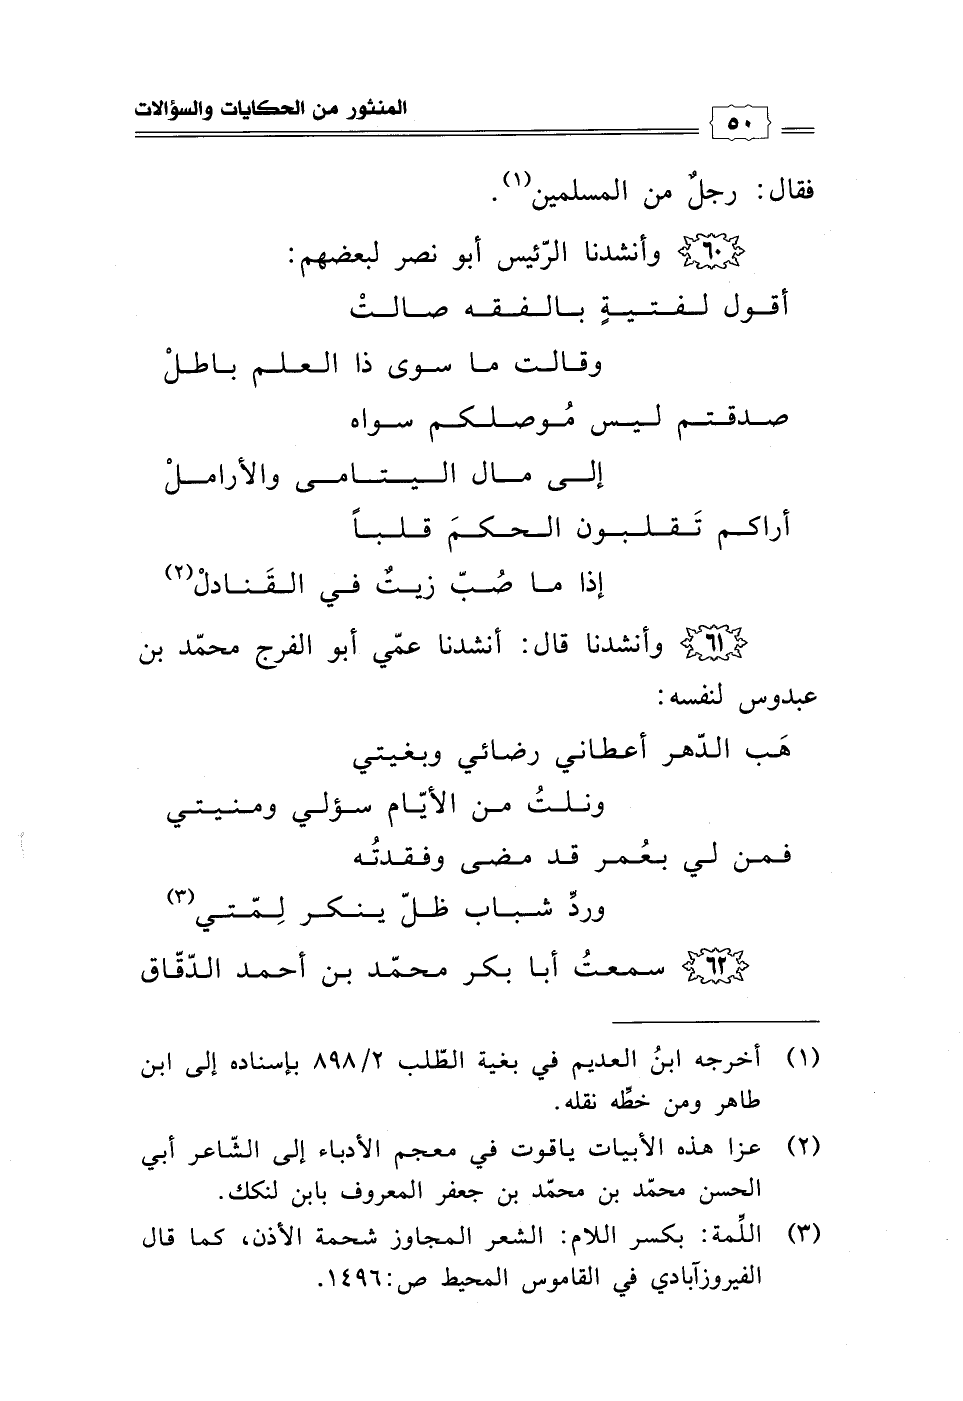 المنثور من الحكايات والسؤالات
٥٠
فقال: رجلٌ من المسلمين(١).
٦٠ وأنشدنا الرّئيس أبو نصر لبعضهم:
أقول لفتيةٍ بالفقه صالتْ
وقالت ما سوى ذا العلم باطلْ
صدقتم ليس مُوصلكم سواه
إلى مال اليتامى والأراملْ
أراكم تَقلبون الحكمَ قلباً
إذا ما صُبّ زيتٌ في القَنادلْ(٢)
٦١ وأنشدنا قال: أنشدنا عمّي أبو الفرج محمّد بن
عبدوس لنفسه:
هَب الدّهر أعطاني رضائي وبغيتي
ونلتُ من الأيّام سؤلي ومنيتي
فمن لي بعُمر قد مضى وفقدتُه
وردِّ شباب ظلّ ينكر لِمّتي(٣)
٦٢ سمعتُ أبا بكر محمّد بن أحمد الدّقّاق
(١) أخرجه ابنُ العديم في بغية الطّلب ٨٩٨/٢ بإسناده إلى ابن
طاهر ومن خطِّه نقله.
(٢) عزا هذه الأبيات ياقوت في معجم الأدباء إلى الشّاعر أبي
الحسن محمّد بن محمّد بن جعفر المعروف بابن لنكك.
(٣) اللِّمة: بكسر اللام: الشعر المجاوز شحمة الأذن، كما قال
الفيروزآبادي في القاموس المحيط ص:١٤٩٦.